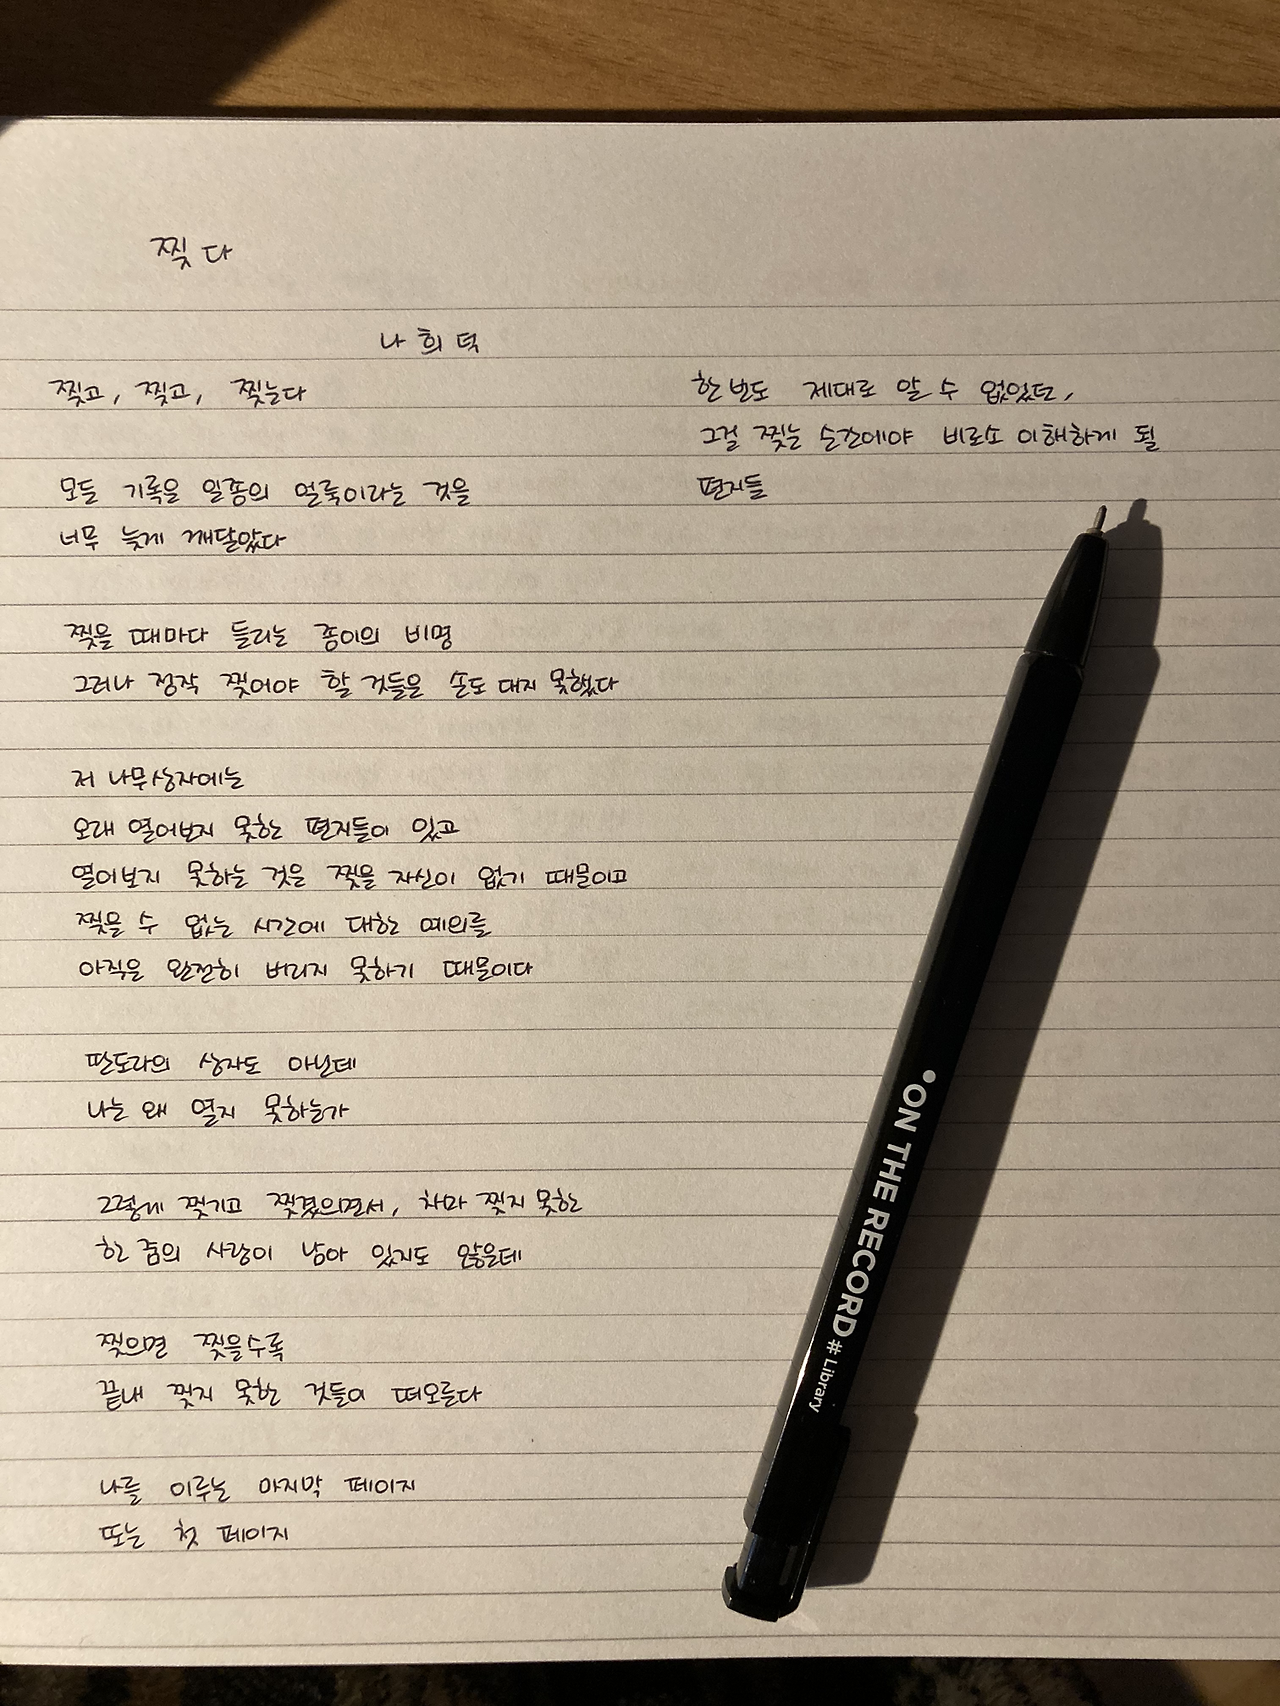 찢다
나희덕
찢고, 찢고, 찢는다
모든 기록은 일종의 얼룩이라는 것을
너무 늦게 깨달았다
찢을 때마다 들리는 종이의 비명
그러나 정작 찢어야 할 것들은 손도 대지 못했다
저 나무상자에는
오래 열어보지 못한 편지들이 있고
열어보지 못하는 것은 찢을 자신이 없기 때문이고
찢을 수 없는 시간에 대한 예의를
아직은 완전히 버리지 못하기 때문이다
판도라의 상자도 아닌데
나는 왜 열지 못하는가
그렇게 찢기고 찢겼으면서, 차마 찢지 못한
한 줌의 사랑이 남아 있지도 않은데
찢으면 찢을수록
끝내 찢지 못한 것들이 떠오른다
나를 이루는 마지막 페이지
또는 첫 페이지
한번도 제대로 알 수 없었던,
그걸 찢는 순간에야 비로소 이해하게 될
편지들
ON THE RECORD # Library